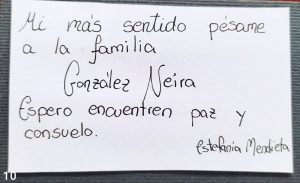 Mi más sentido pésame
a la familia
González Neira
Espero encuentren paz y
consuelo.
Estefania Mendieta
10